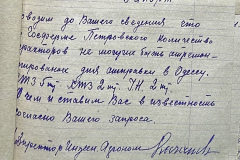 Доводим до Вашего сведения что
в Госферме Петровского количество
тракторов не могущие быть отремон-
тированные для отправки в Одессу.
СТЗ 5 шт. ХТЗ 2 шт. Г.Н. 2 шт.
О чем и ставим Вас в известность
согласно Вашего запроса.
Директор
Агроном